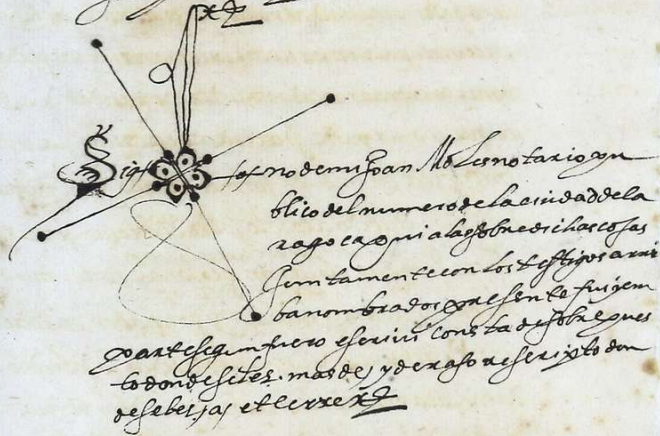 Sig no de mi Joan Moles notario pu
blico del numero de la ciudad de ça
ragoça qui a las sobredichas cosas
juntamente con los testigos arri
ba nombrados presente fui y em
parte segun fuero escriui consta de sobrepues
to donde se lee mas de y de raso rescripto don
de se lee et cerre